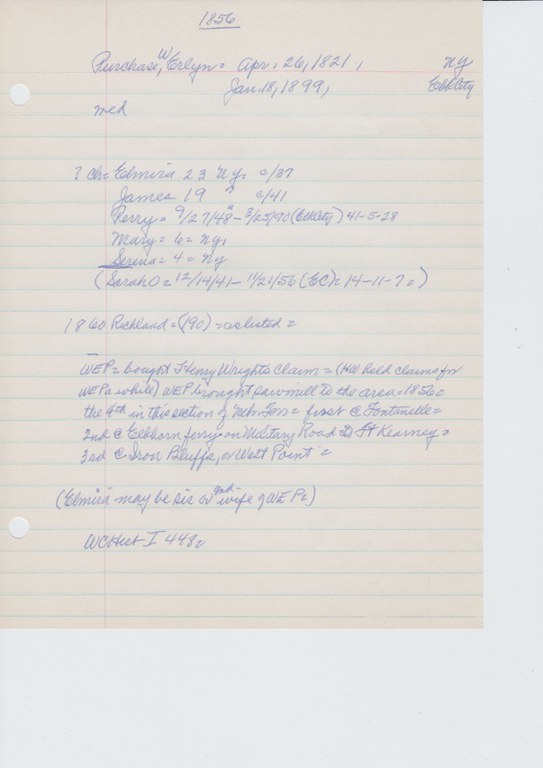 1856
Purchase, W Erlyn = Apr. 26, 1821, NY
Jan. 18, 1899, Elk City
med
? Ch = Elmira 23 NY = c/37
James 19 " c/41
Perry = 9/27/48 - 3/25/90 (Elk City) 41-5-28
Mary = 6 = NY,
Serena = 4 = NY
(Sarah O = 12/14/41 - 11/21/56 (EC) = 14-11-7 =)
1860 Richland = (190) = as listed =
WEP = bought Henry Wrights Claim = (HW held claims for
WEP a while) WEP brought sawmill to the area = 1856 =
the 4th in this section of Neb Ter = first @ Fontanelle =
2nd @ Elkhorn ferry on Military Road to Ft Kearney =
3rd @ Iron Bluffs, or West Point =
(Elmira may be sis or 2nd wife of WEP =)
WCHist I 448 =